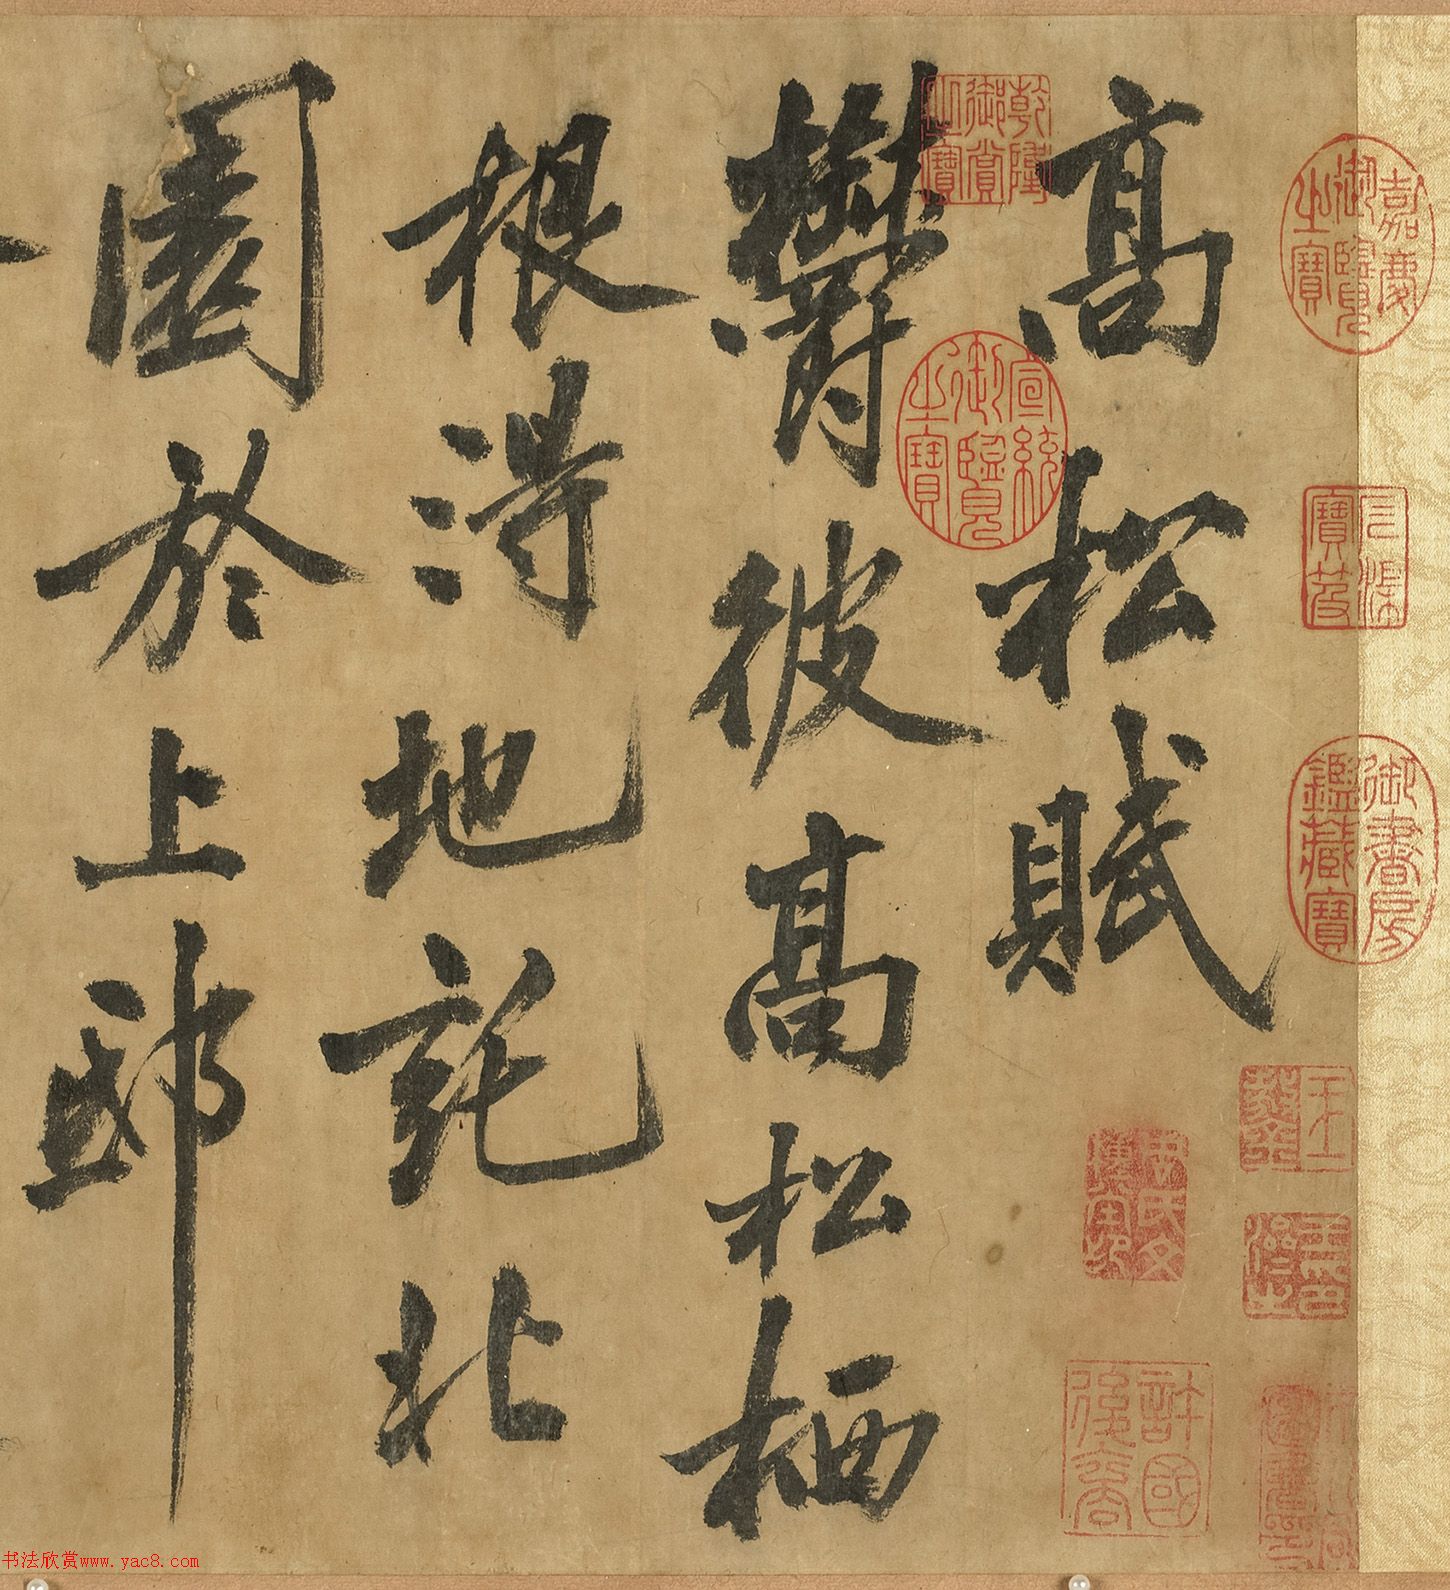 高松賦
鬱彼高松栖
根得地託北
園於上邸
嘉慶御覽之寶
乾隆御賞之寶
宣統御覽之寶
石渠寶笈
御書房鑑藏寶
許國後裔
书法欣赏www.yac8.com